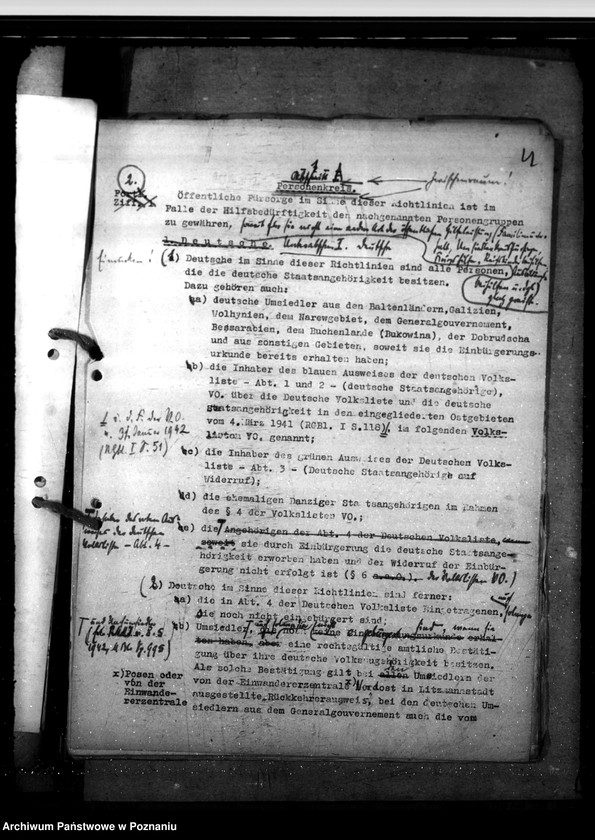 4
2.
Abschnitt I
Zwischenraum!
Personenkreis.
Ziff.
Öffentliche Fürsorge im Sinne dieser Richtlinien ist im
Falle der Hilfsbedürftigkeit den nachgenannten Personengruppen
zu gewähren,
1. Deutsche. Deutsche
Einrücken!
(1) Deutsche im Sinne dieser Richtlinien sind alle Personen,
die die deutsche Staatsangehörigkeit besitzen.
Dazu gehören auch:
a) deutsche Umsiedler aus den Baltenländern, Galizien,
Volhynien, dem Narewgebiet, dem Generalgouvernement,
Bessarabien, dem Buchenlande (Bukowina), der Dobrudscha
und aus sonstigen Gebieten, soweit sie die Einbürgerungs-
urkunde bereits erhalten haben;
b) die Inhaber des blauen Ausweises der deutschen Volks-
liste - Abt. 1 und 2 - (deutsche Staatsangehörige),
VO. über die Deutsche Volksliste und die deutsche
Staatsangehörigkeit in den eingegliederten Ostgebieten
vom 4. März 1941 (RGBl. I S.118), im folgenden Volks-
listen VO. genannt;
i. d. F. der VO.
v. 31. Januar 1942
(RGBl. I S. 51)
c) die Inhaber des grünen Ausweises der Deutschen Volks-
liste - Abt. 3 - (Deutsche Staatsangehörige auf
Widerruf);
d) die ehemaligen Danziger Staatsangehörigen im Rahmen
des § 4 der Volkslisten VO.;
Inhaber des roten Aus-
weises der deutschen
Volksliste - Abt. 4 -
e) die Angehörigen der Abt. 4 der Deutschen Volksliste,
soweit sie durch Einbürgerung die deutsche Staatsange-
hörigkeit erworben haben und der Widerruf der Einbür-
gerung nicht erfolgt ist (§ 6 a.a.O.). der Volkslisten VO.)
(2) Deutsche im Sinne dieser Richtlinien sind ferner:
a) die in Abt. 4 der Deutschen Volksliste Eingetragenen, solange
sie noch nicht eingebürgert sind;
b) Umsiedler, sind, wenn sie
eine rechtsgültige amtliche Bestäti-
gung über ihre deutsche Volkszugehörigkeit besitzen.
Als solche Bestätigung gilt bei allen Umsiedlern der
von der Einwandererzentrale x) Nordost in Litzmannstadt
ausgestellte "Rückkehrerausweis", bei den deutschen Um-
siedlern aus dem Generalgouvernement auch die vom
v. 8.5.
1942
x) Posen oder
von der
Einwande-
rerzentrale
Archiwum Państwowe w Poznaniu